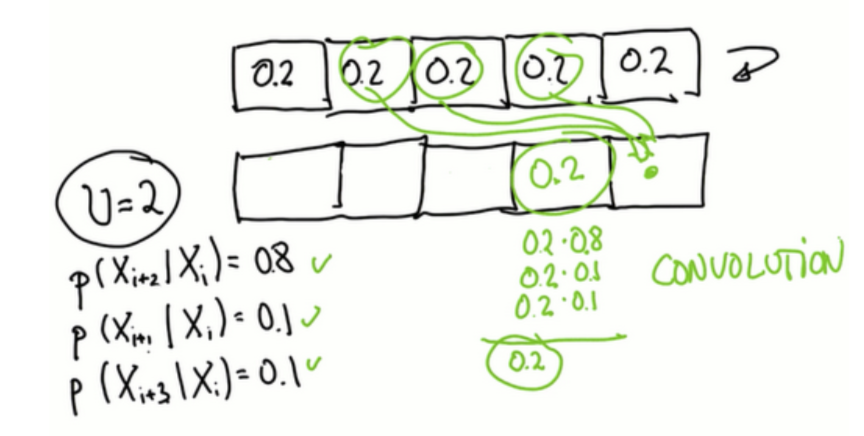 0.2 0.2 0.2 0.2 0.2
0.2
U=2
p(Xi+2|Xi)=0.8 ✓
p(Xi+1|Xi)=0.1 ✓
p(Xi+3|Xi)=0.1 ✓
0.2·0.8
0.2·0.1
0.2·0.1
0.2
CONVOLUTION